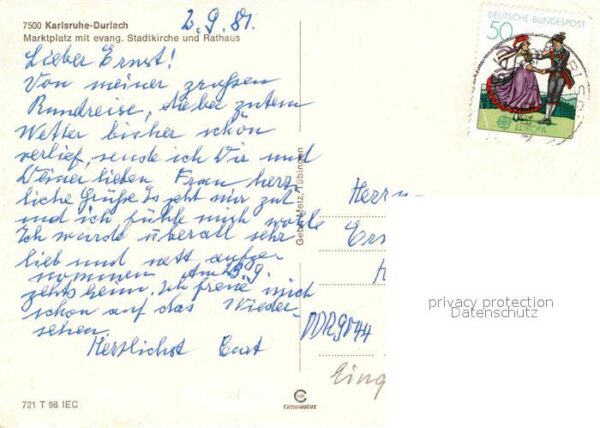 7500 Karlsruhe-Durlach
Marktplatz mit evang. Stadtkirche und Rathaus
2.9.81.
Lieber Ernst!
Von meiner großen
Rundreise, die bei gutem
Wetter bisher schön
verlief, sende ich Dir und
Deiner lieben Frau herz-
liche Grüße. Es geht mir gut
und ich fühle mich wohl.
Ich wurde überall sehr
lieb und nett aufge
nommen. Am 13.9.
gehts heim. Ich freue mich
schon auf das Wieder-
sehen.
Herzlichst Curt
DEUTSCHE BUNDESPOST
50
EUROPA
Gebr. Metz, Tübingen
Herrn
Ern
DDR 9044
privacy protection
Datenschutz
Eing
721 T 98 IEC